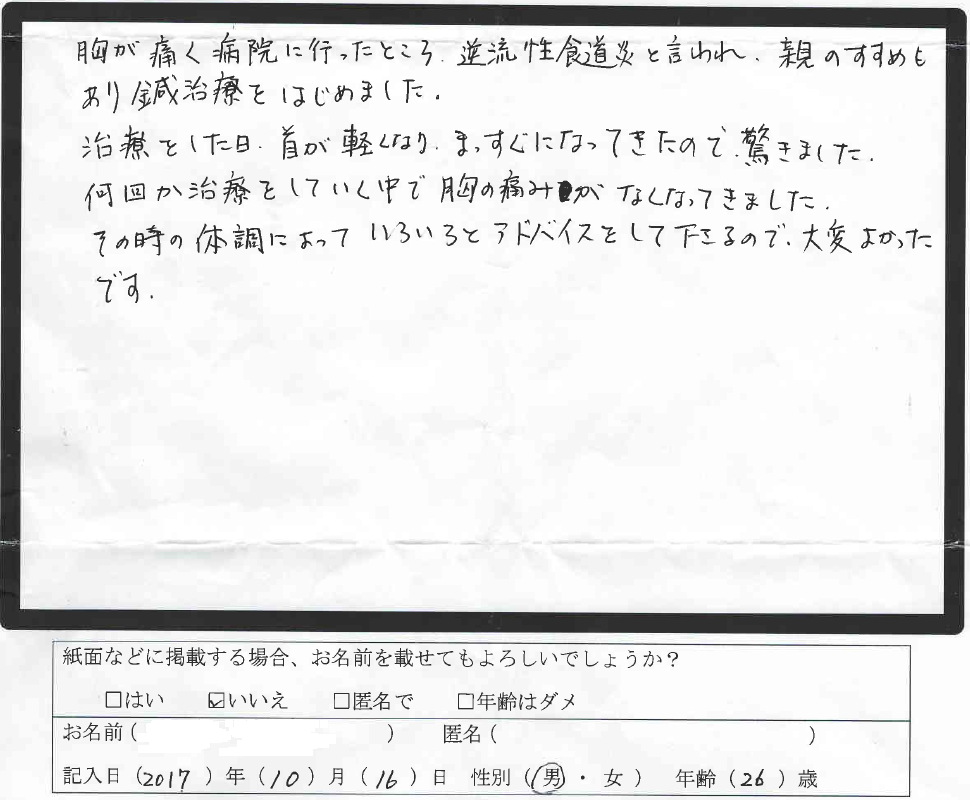 胸が痛く病院に行ったところ、逆流性食道炎と言われ、親のすすめも
あり鍼治療をはじめました。
治療をした日、首が軽くなり、まっすぐになってきたので、驚きました。
何回か治療をしていく中で胸の痛みがなくなってきました。
その時の体調によっていろいろとアドバイスをして下さるので、大変よかった
です。
紙面などに掲載する場合、お名前を載せてもよろしいでしょうか？
□はい ☑いいえ □匿名で □年齢はダメ
お名前（ ） 匿名（ ）
記入日（2017）年（10）月（16）日 性別（男・女） 年齢（26）歳